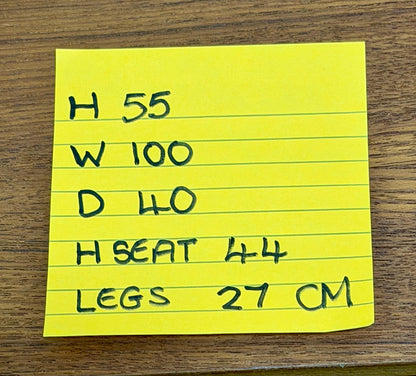 H 55
W 100
D 40
H SEAT 44
LEGS 27 CM